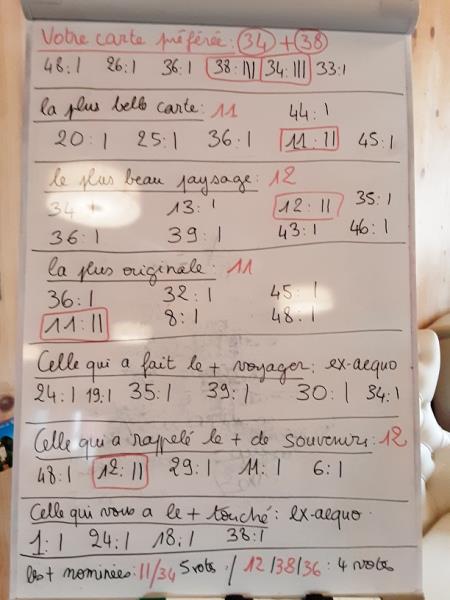 Votre carte préférée : 34 + 38
48 : I 26 : I 36 : I 38 : III 34 : III 33 : I
la plus belle carte : 11
44 : I
20 : I 25 : I 36 : I 11 : II 45 : I
le plus beau paysage : 12
34 13 : I 12 : II 35 : I
36 : I 39 : I 43 : I 46 : I
la plus originale : 11
36 : I 32 : I 45 : I
11 : II 8 : I 48 : I
Celle qui a fait le + voyager : ex-aequo.
24 : I 19 : I 35 : I 39 : I 30 : I 34 : I
Celle qui a rappelé le + de souvenirs : 12
48 : I 12 : II 29 : I 11 : I 6 : I
Celle qui vous a le + touché : ex-aequo.
1 : I 24 : I 18 : I 38 : I
les + nominées : 11/34 5 votes / 12/38/36 : 4 votes